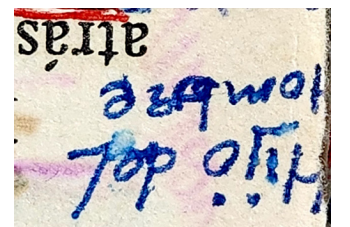 Hijo del
hombre
atrás